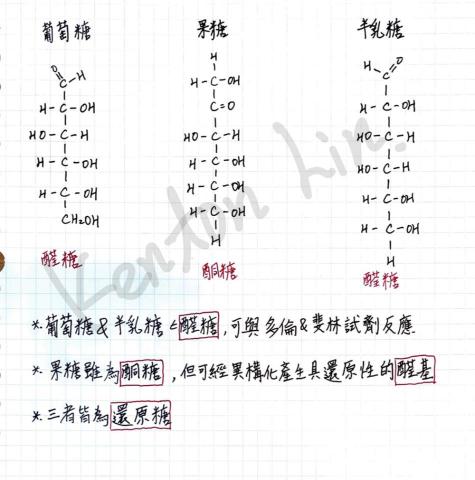 葡萄糖
果糖
半乳糖
O
C-H
H-C-OH
HO-C-H
H-C-OH
H-C-OH
CH2OH
醛糖
H
H-C-OH
C=O
HO-C-H
H-C-OH
H-C-OH
H-C-OH
H
酮糖
H-C=O
H-C-OH
HO-C-H
HO-C-H
H-C-OH
H-C-OH
H
醛糖
*.葡萄糖&半乳糖∈醛糖,可與多倫&斐林試劑反應
*.果糖雖為酮糖,但可經異構化產生具還原性的醛基
*.三者皆為還原糖
Kenton Lin.